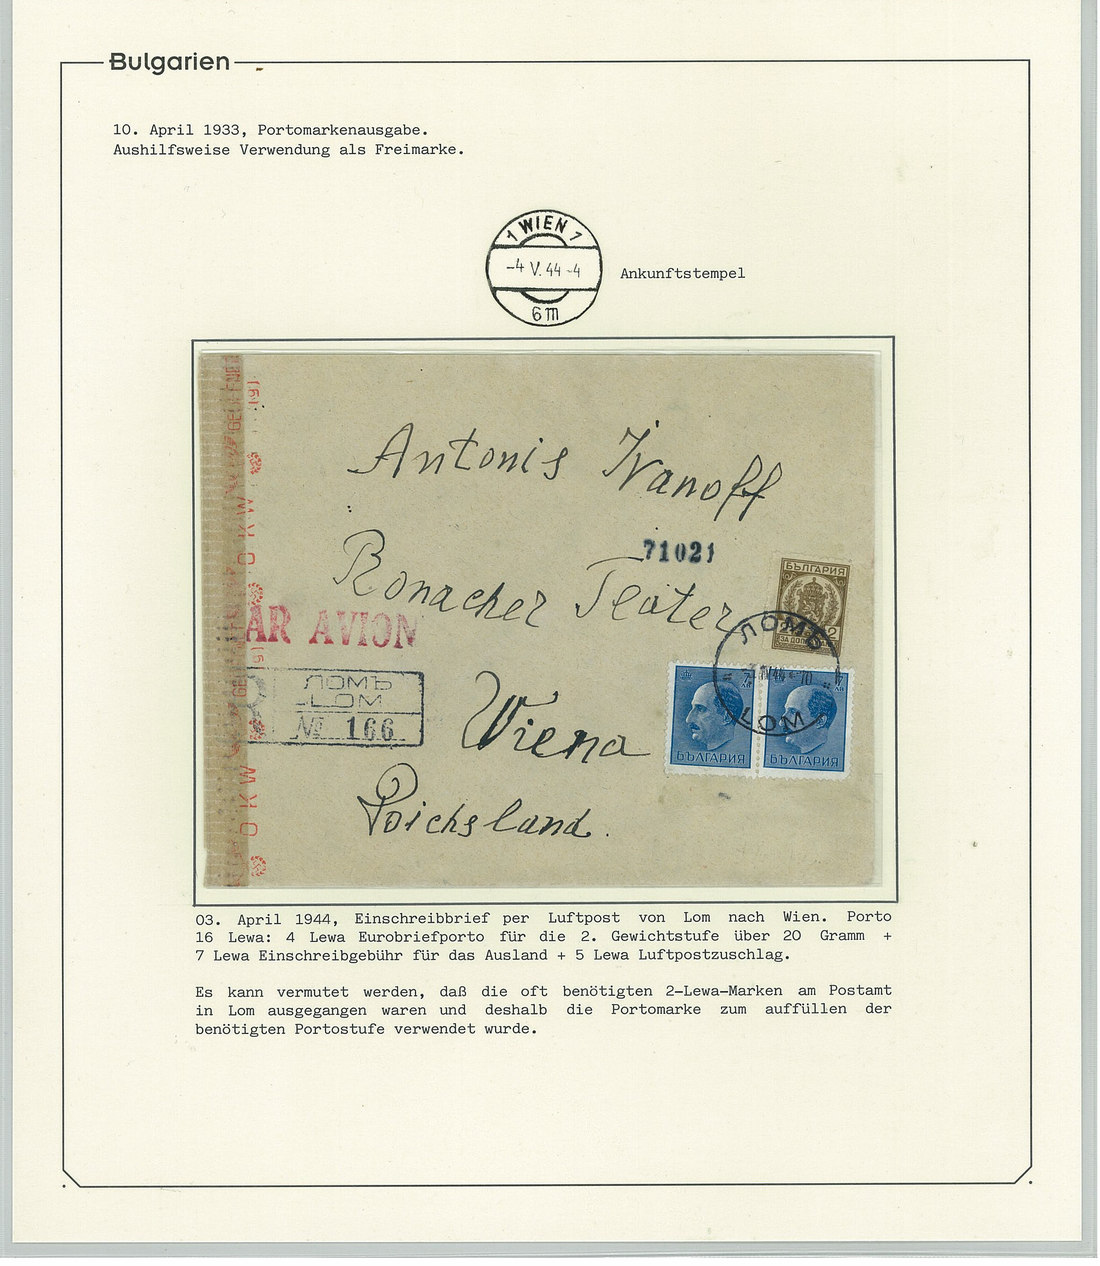 Bulgarien
10. April 1933, Portomarkenausgabe.
Aushilfsweise Verwendung als Freimarke.
1 WIEN 1
-4 V. 44 -4
6m
Ankunftstempel
Antonis Ivanoff
71021
Ronacher Teater
БЪЛГАРИЯ
2
ЗА
PAR AVION
ЛОМЪ
LOM
7
ЛВ
7
ЛВ
БЪЛГАРИЯ
БЪЛГАРИЯ
ЛОМЪ
LOM
№ 166
Wiena
Roichsland.
OKW
OKW
03. April 1944, Einschreibbrief per Luftpost von Lom nach Wien. Porto
16 Lewa: 4 Lewa Eurobriefporto für die 2. Gewichtstufe über 20 Gramm +
7 Lewa Einschreibgebühr für das Ausland + 5 Lewa Luftpostzuschlag.
Es kann vermutet werden, daß die oft benötigten 2-Lewa-Marken am Postamt
in Lom ausgegangen waren und deshalb die Portomarke zum auffüllen der
benötigten Portostufe verwendet wurde.